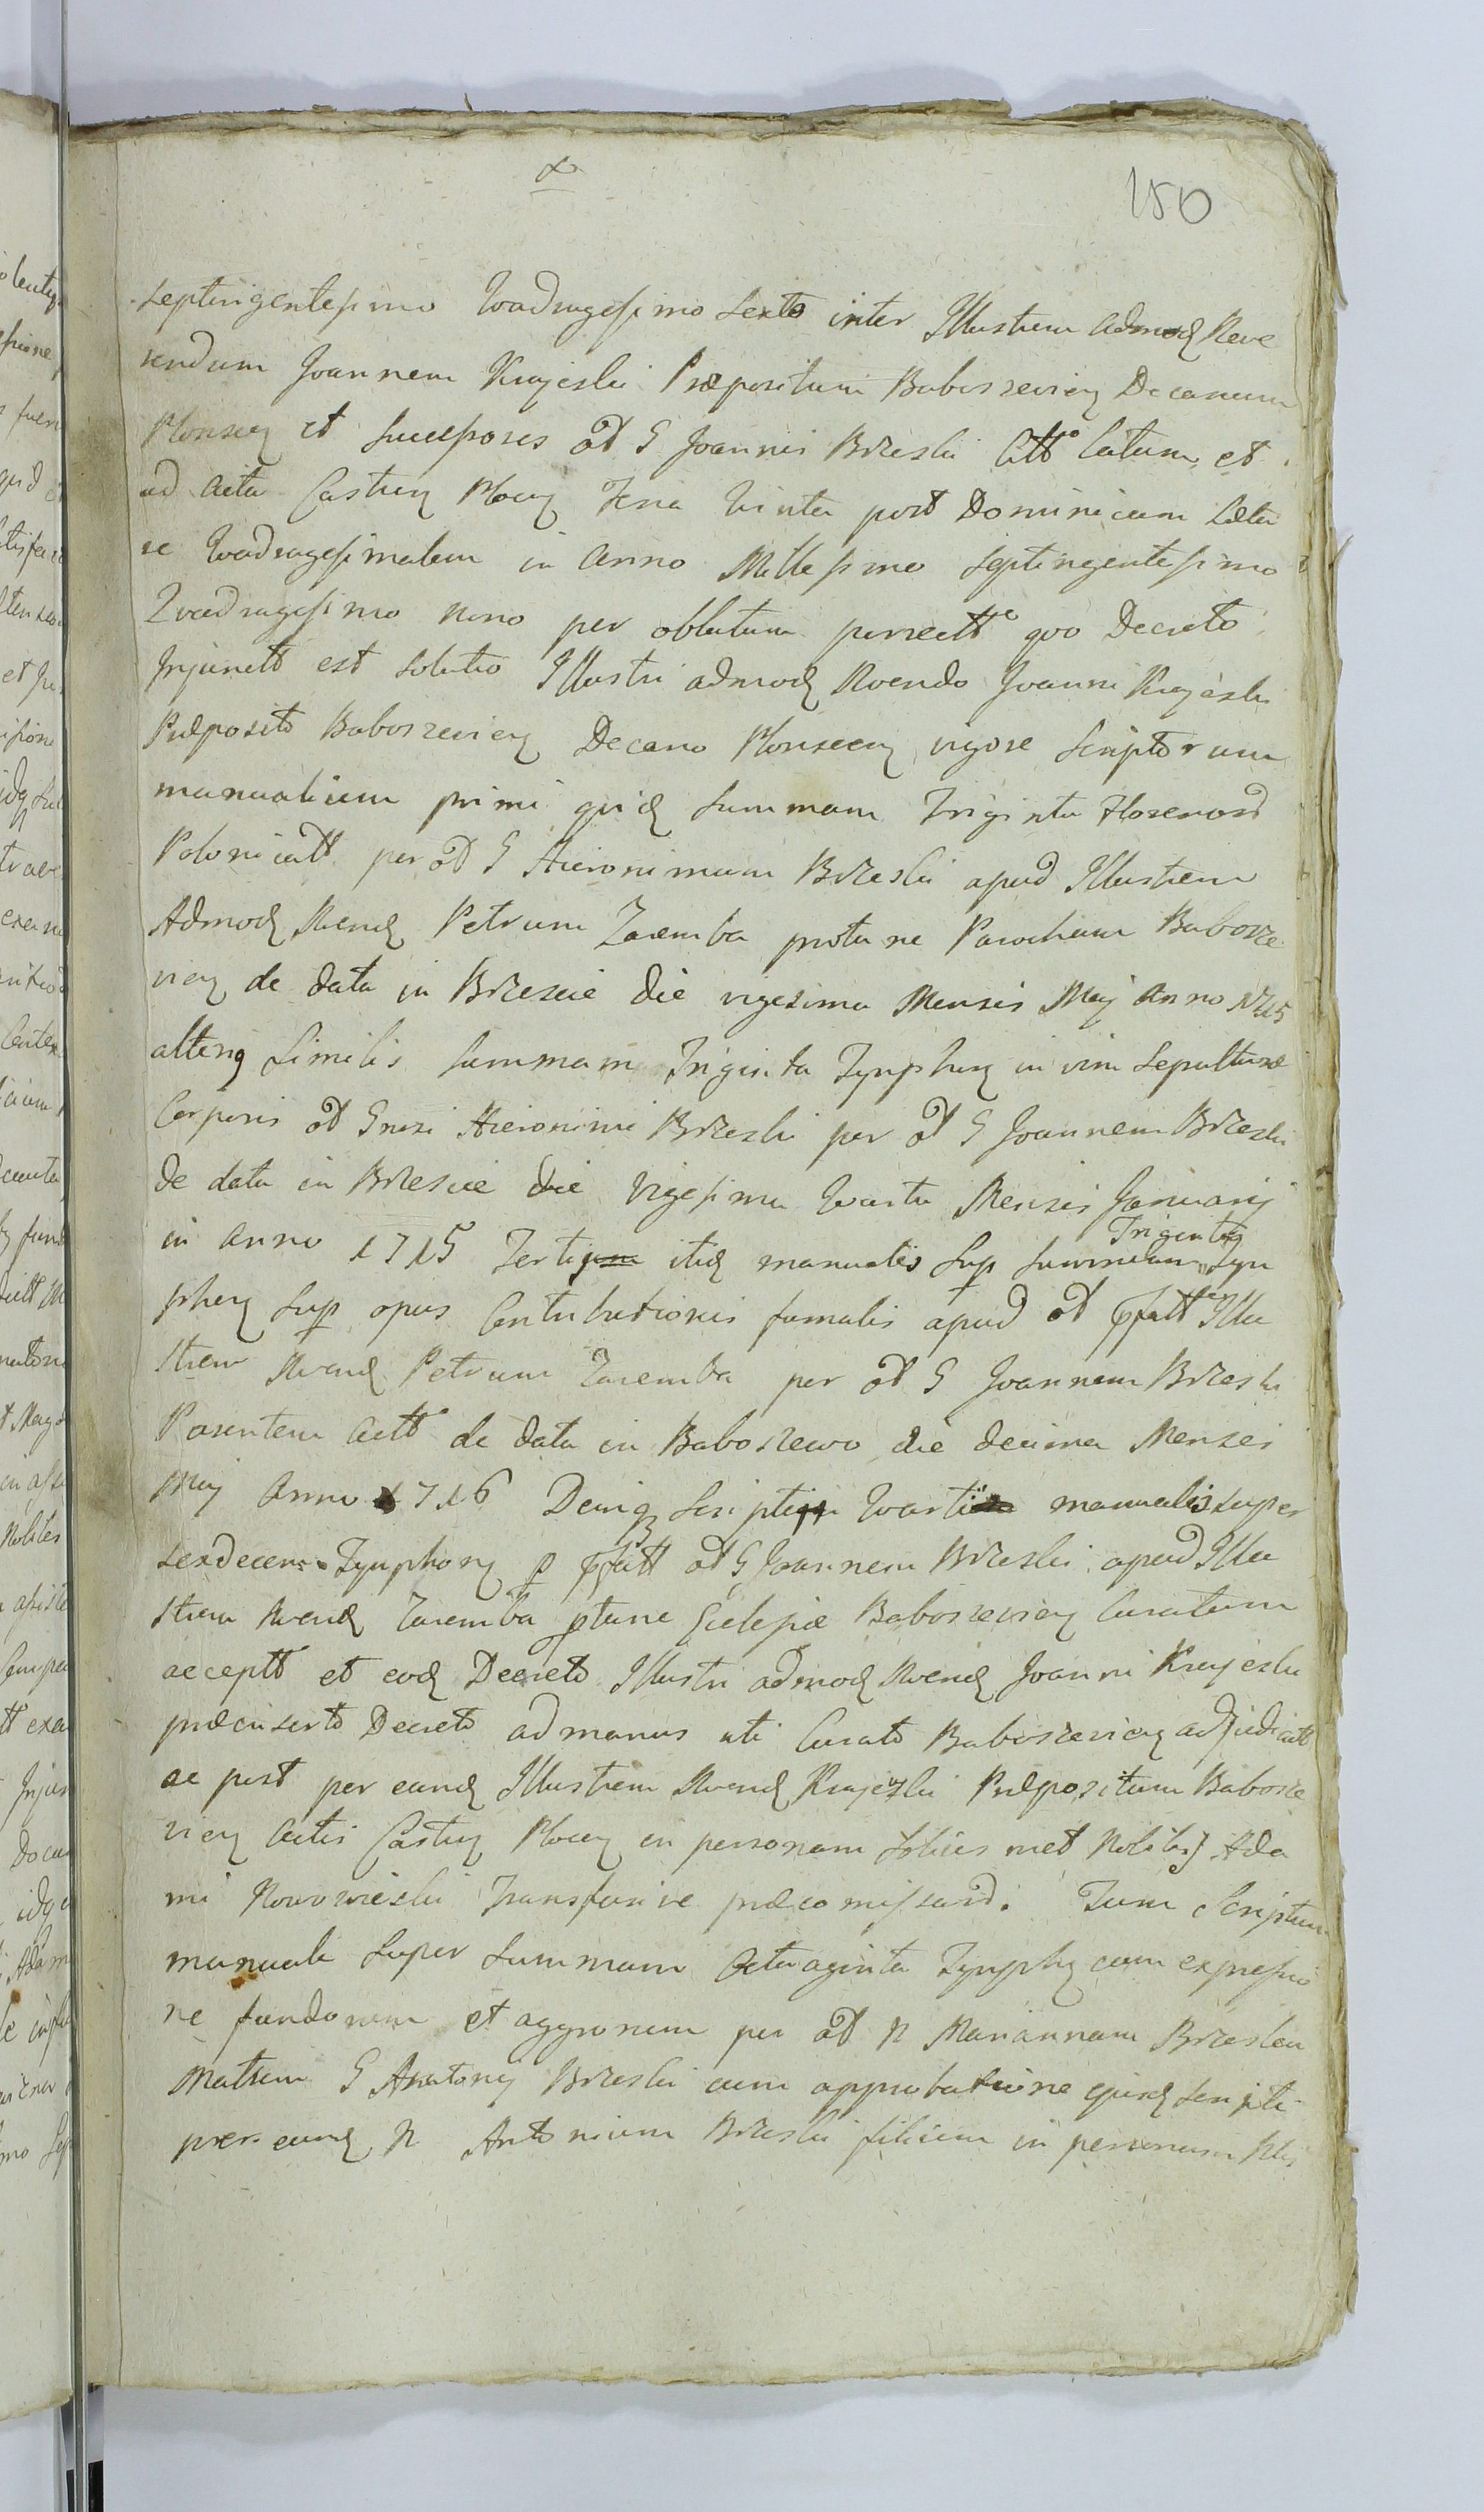 150
septingentesimo Qvadragesimo Sexto inter Illustrem Admod Reve
rendum Joannem Krajeski Præpositum Baboszevien Decanum
Plonscen et Successores od G Joannis Brzeski Actt latum et
ad Acta Castren Plocen Feria Qvinta post Dominicam Læta
re Qvadragesimalem in Anno Millesimo Septingentesimo
Qvadragesimo nono per oblatam porrectt qvo Decreto
Injunctt est solutio Illustri admod Rvendo Joanni Krajeski
Præposito Baboszevien Decano Plonscen vigore Scriptorum
manualium primi qvid Summam Triginta Florenord
Polonicatt per od G Hieronimum Brzeski apud Illustrem
Admod Rvend Petrum Zaremba protunc Parochum Babosze
vien de data in Brzescie die vigesima Mensis Maij Anno 1715
alterq Similis Summam Triginta Tynphon in vim Sepulturæ
Corporis od Gnosi Hieronimi Brzeski per od G Joannem Brzeski
de data in Brzescie die Vigesima Qvarta Mensis Januarij
in Anno 1715 Tertij itid manualis Sup Summam Triginta Tyn
phon Sup opus Contributionis fumalis apud od pfatt Illu
strem Rvend Petrum Zaremba per od G Joannem Brzeski
Parentem Actt de data in Baboszewo die decima Mensis
Maij Anno 1716 Deniq Scripti Qvarti manualis super
sexdecem Tynphon p pfatt od G Joannem Brzeski apud Illu
strem Rvend Zaremba ptunc Ecclesiæ Baboszevien Curatum
acceptt et eod Decreto Illustri admod Rvend Joanni Krajeski
præinserto Decreto ad manus uti Curato Baboszevien adjudicatt
ac post per eund Illustrem Rvend Krajeski Præpositum Babosze
vien Actis Castren Plocen in personam Solius met Nobilis Ada
mi Nowowieski Transfusive præcomissard. Tum Scriptum
manuale Super Summam Octuaginta Tynphon cum expressio
ne fundorum et agrorum per od N Mariannam Brzeska
Matrem G Antonij Brzeski cum approbatione ejusd Scripti
per eund N Antonium Brzeski filium in personam Nlis